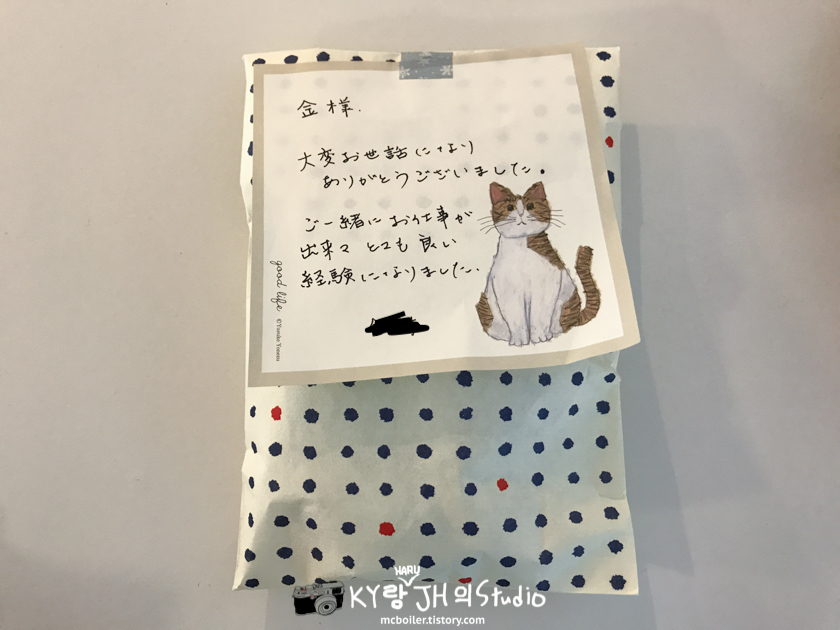 金様.
大変お世話になり
ありがとうございました。
ご一緒にお仕事が
出来て とても 良い
経験になりました.
good life
©Yusuke Yonezu
HARU
KY랑 JH의 Studio
mcboiler.tistory.com